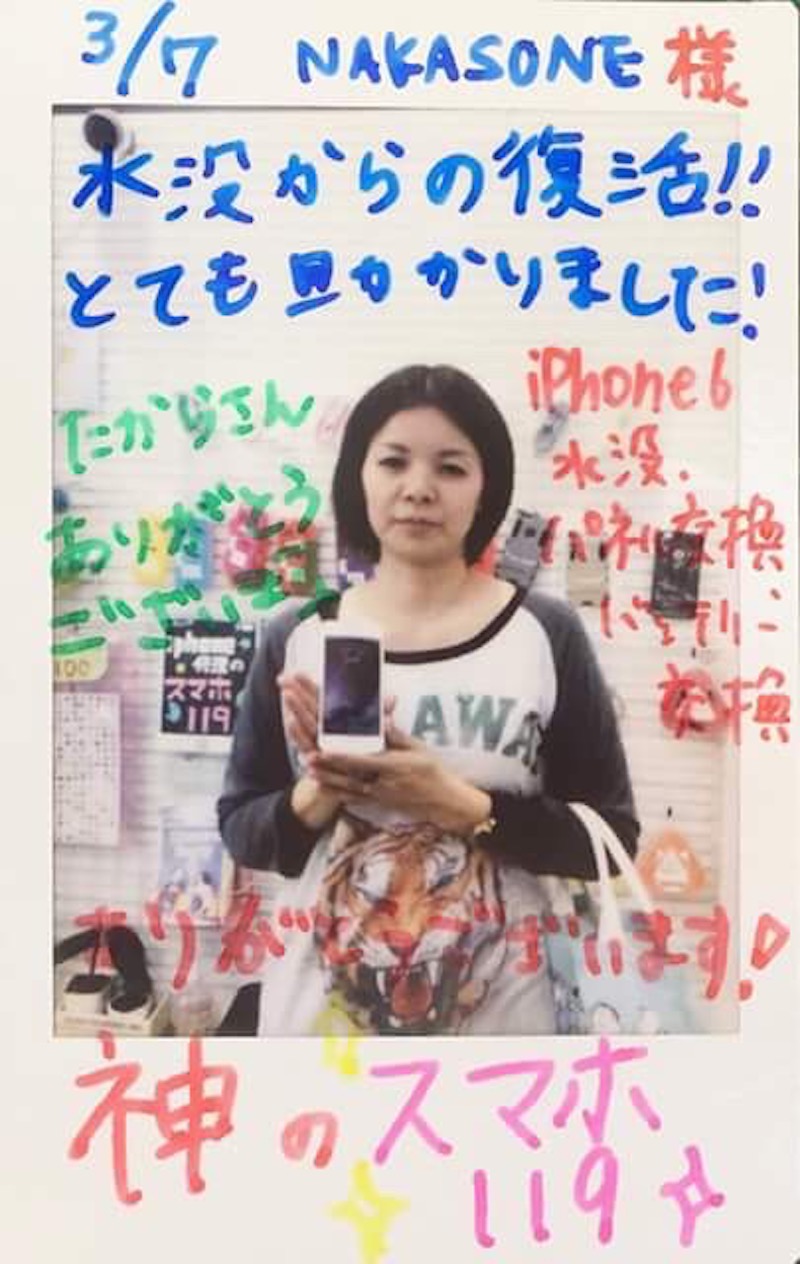 3/7 NAKASONE 様
水没からの復活!!
とても助かりました!
iPhone6
水没.
パネル交換
バッテリー
交換
たからさん
ありがとう
ございます
iphone
修理の
スマホ
119
AWA
ありがとうございます!
神のスマホ
119